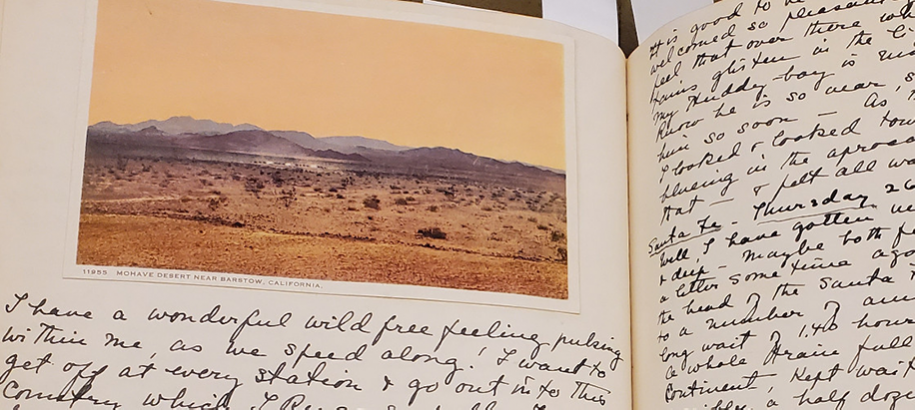 11955 MOHAVE DESERT NEAR BARSTOW, CALIFORNIA.
I have a wonderful wild free feeling pulsing
within me, as we speed along! I want to
get off at every station & go out into this
Country which I
It is good to be
welcomed so pleasant
feel that over there wh
tains glisten in the
my Huddy-boy is
know he is so near, s
him so soon — As,
I looked & looked tow
blueing in the aproac
that — & felt all wa
Santa Fe - Thursday 26
Well, I have gotten
& deep - maybe both
a letter some time ago
the head of the Santa
to a number of am
long wait of 1,40 hours
a whole train full
Continent, kept wait
a half doze